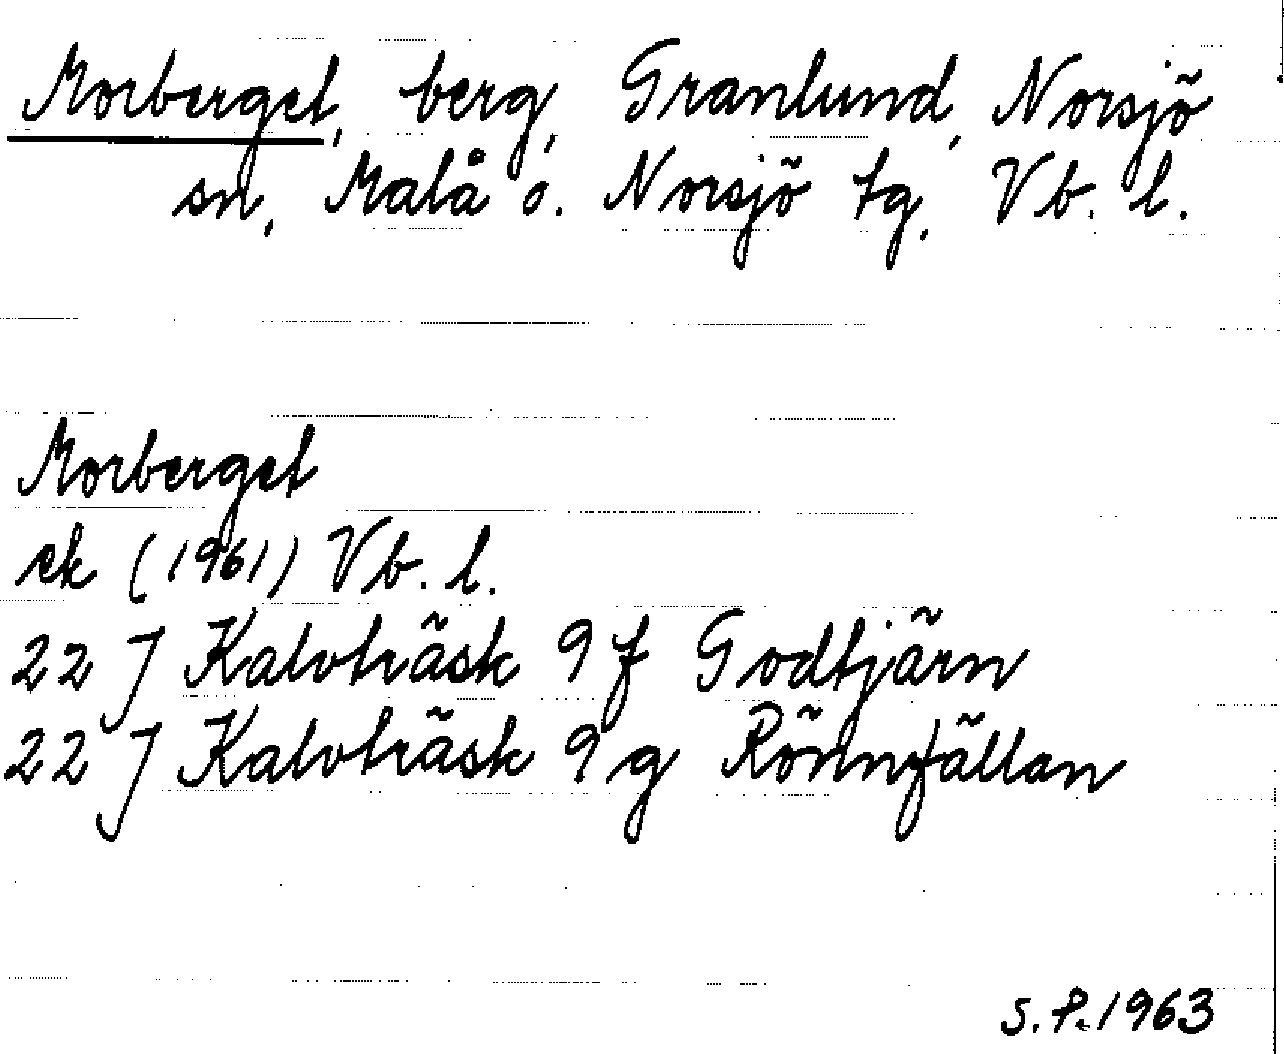 Morberget, berg, Granlund, Norsjö
sn, Malå o. Norsjö tg, Vb. l.
Morberget
ek (1961) Vb. l.
22 J Kalvträsk 9 f Godtjärn
22 J Kalvträsk 9 g Rönnfällan
S. P. 1963